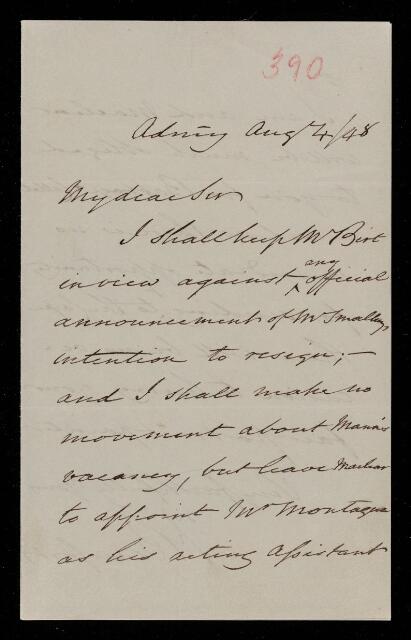 390
Admty Aug 4/48
My dear Sir
I shall keep Mr Birt
in view against ^any official
announcement of Mr Smalley's
intention to resign; —
and I shall make no
movement about Mann's
vacancy, but leave Maclear
to appoint Mr Montagu
as his acting Assistant